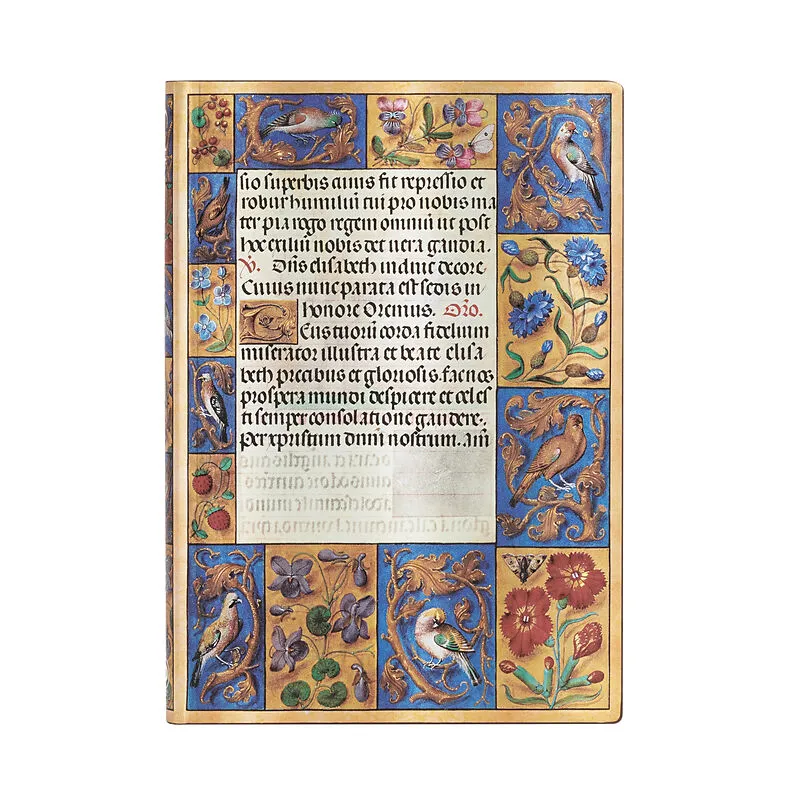 sio superbis cuius fit repressio et
robur humiliū cui pro nobis ma
ter pia rogo regem omniū ut post
hoc exiliū nobis det uera gaudia.
V. Dn̄s elisabeth induit decore
Cuius nunc parata est sedis in
honore Oremus. Oro.
Eus tuorū corda fidelium
miserator illustra et beate elisa
beth precibus et gloriosis. fac nos
prospera mundi despicere et celes
ti semper consolatione gaudere.
Per xpristum dnm̄ nostrum. am̄